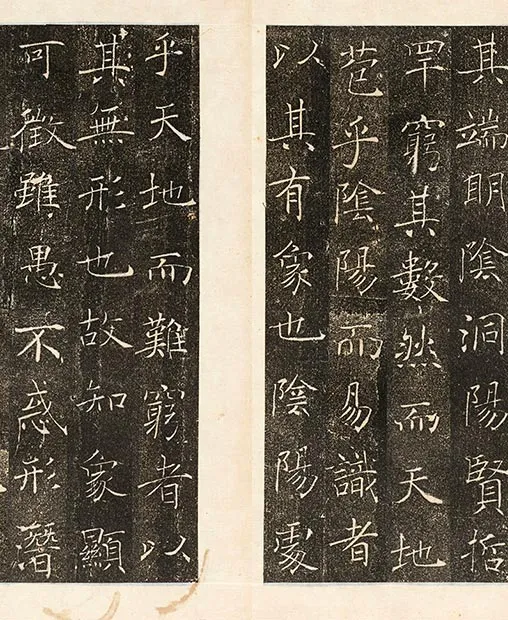 其端明陰洞陽賢哲
罕窮其數然而天地
苞乎陰陽而易識者
以其有象也陰陽處
乎天地而難窮者以
其無形也故知象顯
可徵雖愚不惑形潛